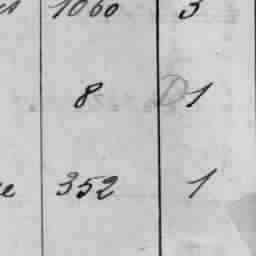 1060 3
8 D 1
352 1